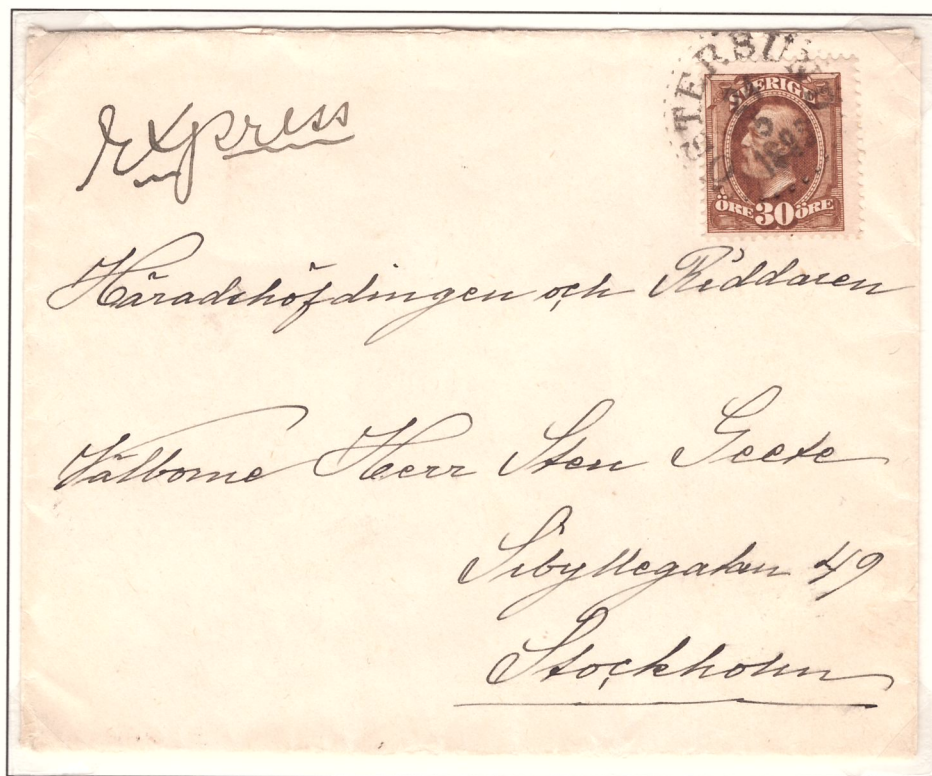 Express
SVERIGE
ÖRE 30 ÖRE
Häradshöfdingen och Riddaren
Välborne Herr Sten Geete
Sibyllegatan 49
Stockholm